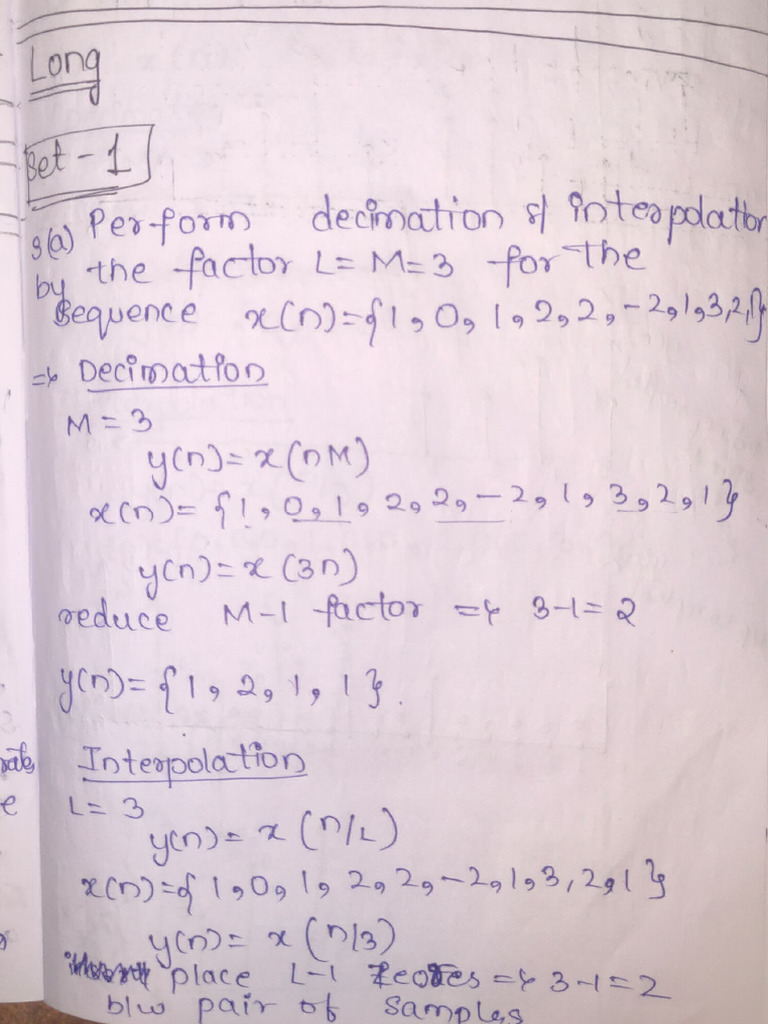 Long
Set - 1
3(a) Perform decimation & interpolation
by the factor L = M = 3 for the
sequence x(n) = {1, 0, 1, 2, 2, -2, 1, 3, 2, 1}
=> Decimation
M = 3
y(n) = x(nM)
x(n) = {1, 0, 1, 2, 2, -2, 1, 3, 2, 1}
y(n) = x(3n)
reduce M-1 factor => 3-1 = 2
y(n) = {1, 2, 1, 1}.
Interpolation
L = 3
y(n) = x(n/L)
x(n) = {1, 0, 1, 2, 2, -2, 1, 3, 2, 1}
y(n) = x(n/3)
place L-1 Zeores => 3-1 = 2
b/w pair of samples